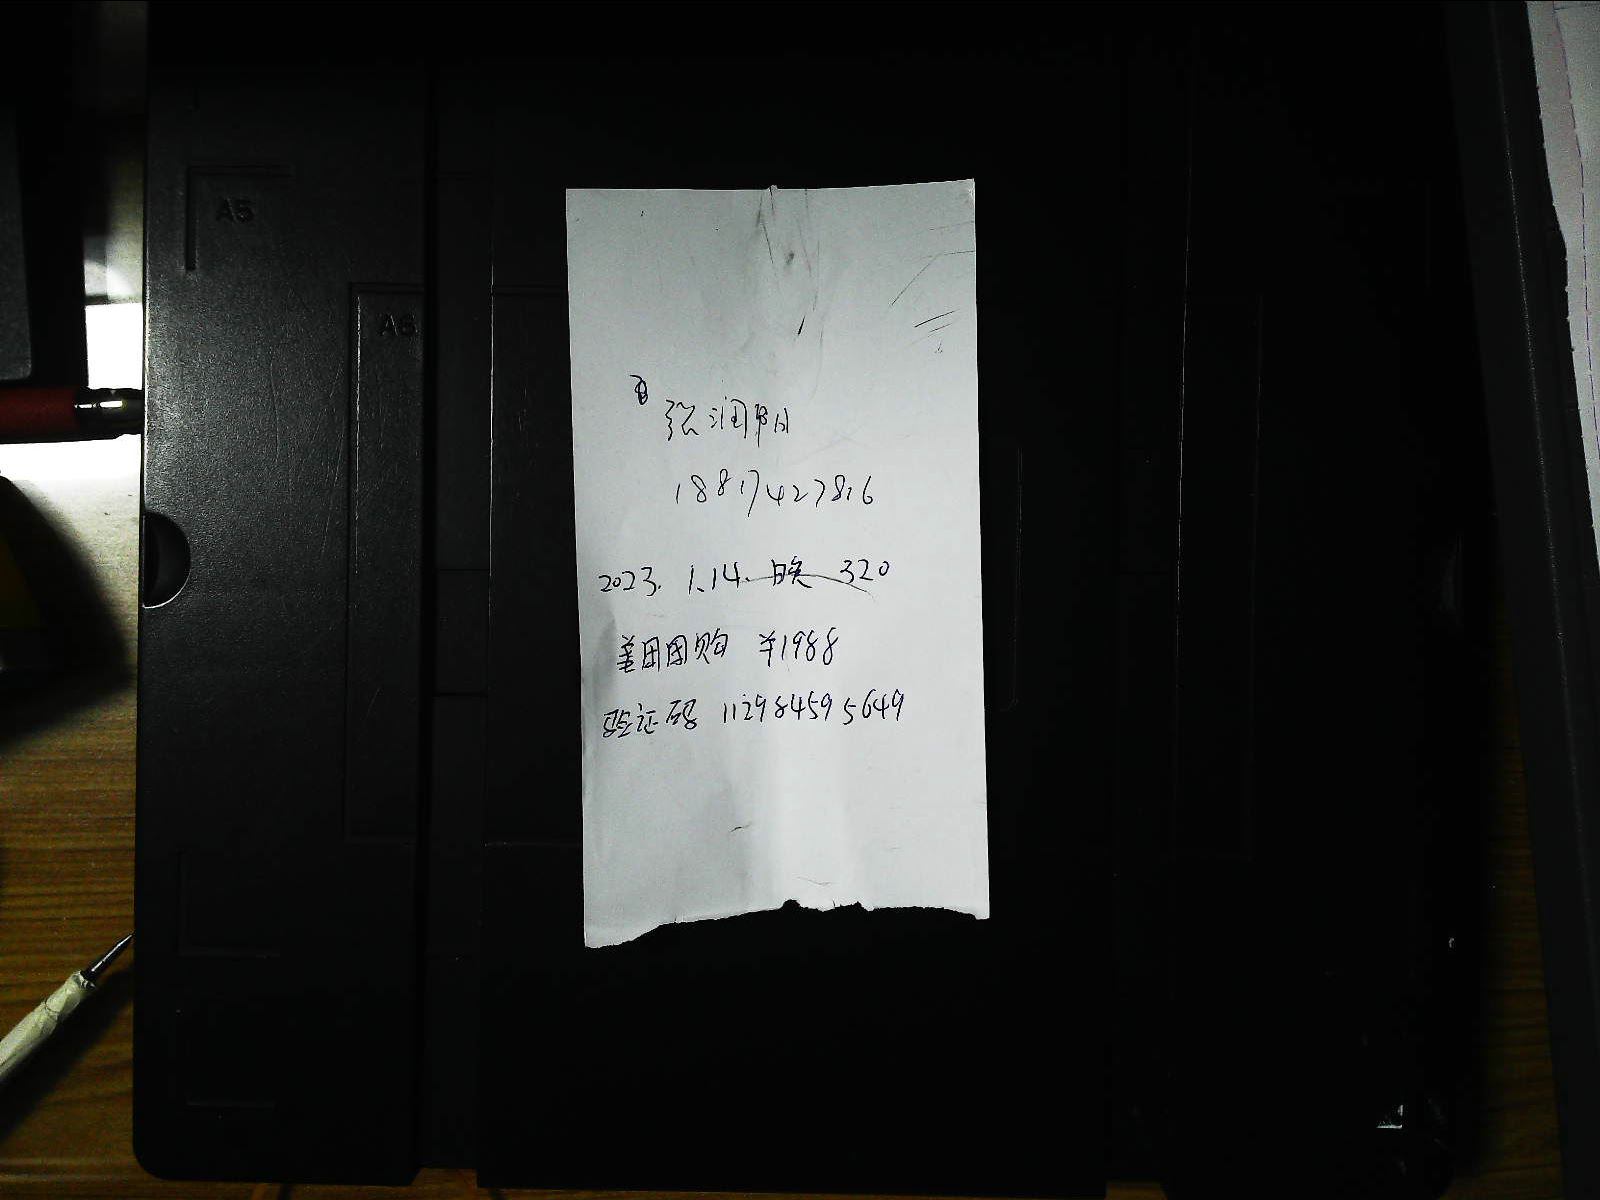 A5
A6
张润阳
18817427816
2023. 1.14. 晚 320
美团团购 ¥1988
验证码 112984595649